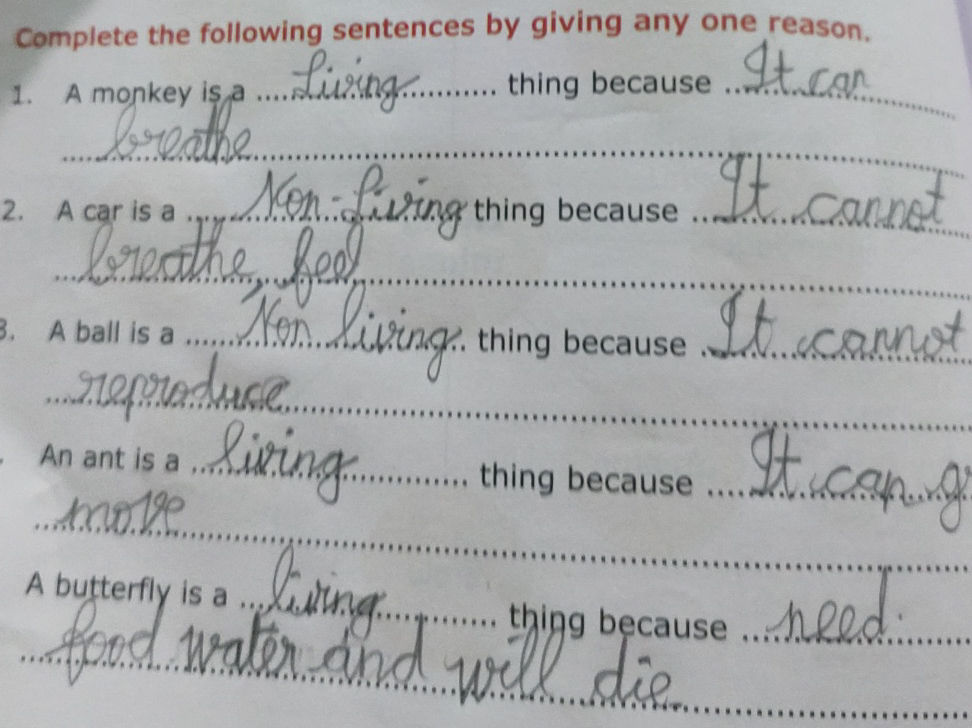 Complete the following sentences by giving any one reason.
1. A monkey is a ....Living............ thing because ..It can
breathe
2. A car is a ....Non-living thing because ...It cannot
breathe, feel
3. A ball is a ......Non living.. thing because ..It cannot
reproduce
An ant is a ...living............ thing because ....It can
move
A butterfly is a ...living............ thing because ....need
food water and will die